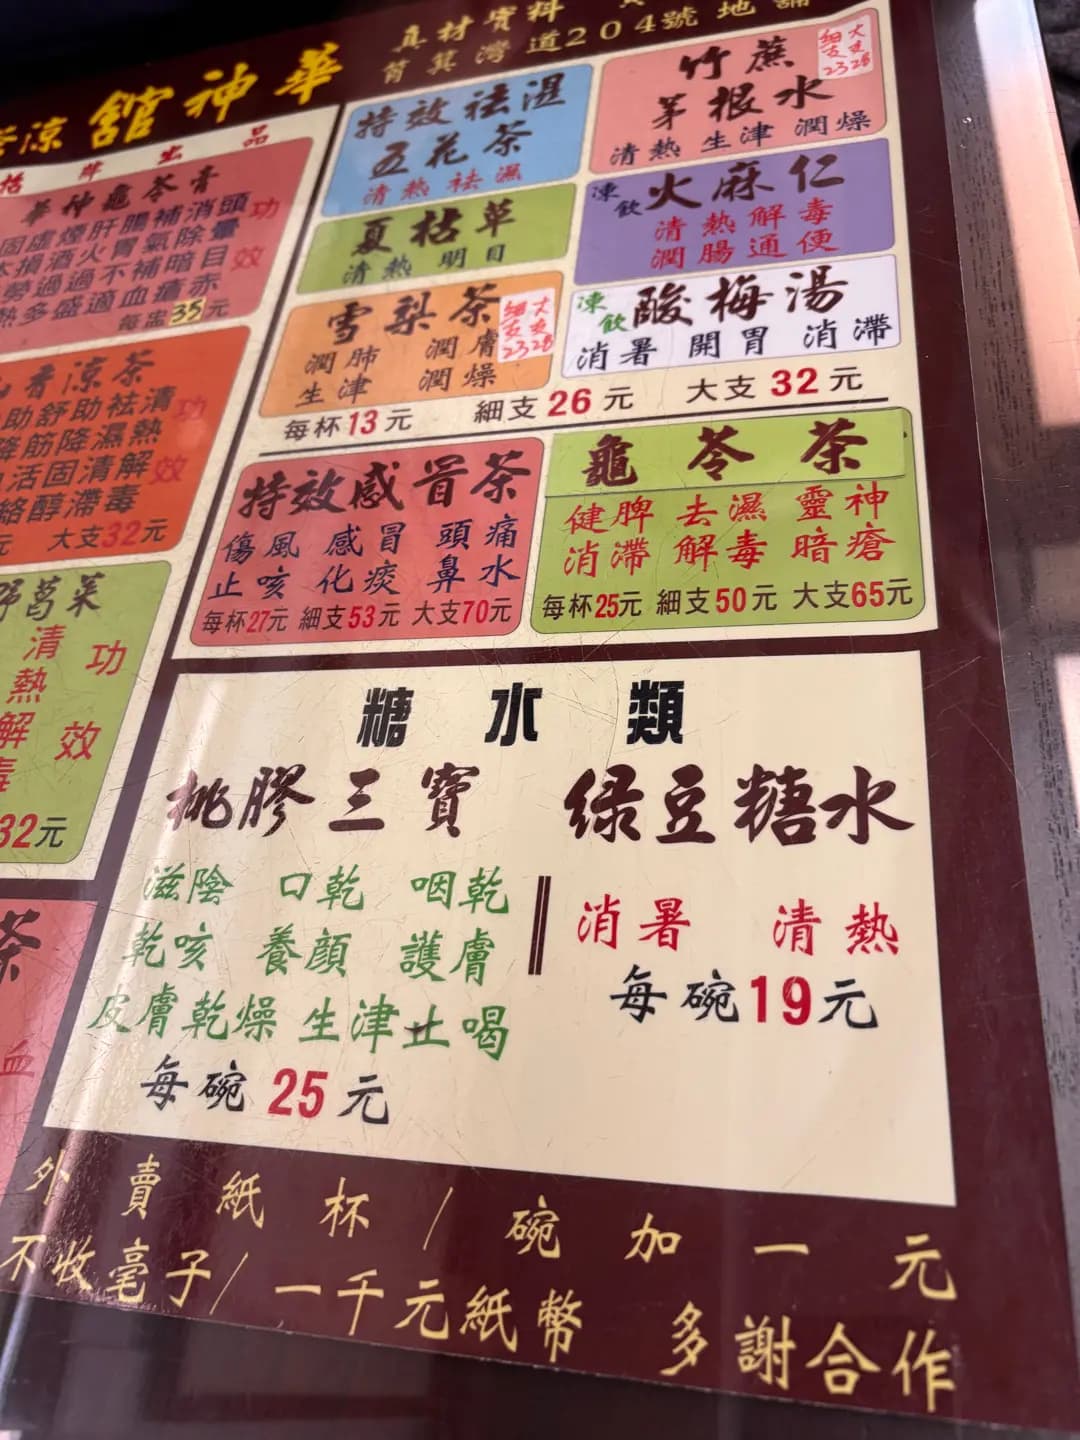 真材實料
筲箕灣道204號地舖
涼 舘神華
品出牌
華神龜苓膏
頭暈目赤
消除暗瘡
補氣補血
腸胃不適
肝火過盛
煙酒過多
虛損勞熱
功效
每盅35元
香涼茶
清熱解毒
祛濕清滯
助降固醇
舒筋活絡
功效
元 大支32元
野葛菜
清熱解毒
功效
32元
茶
血
特效祛濕
五花茶
清熱祛濕
竹蔗
茅根水
清熱 生津 潤燥
細支23
大支28
夏枯草
清熱 明目
凍飲 火麻仁
清熱解毒
潤腸通便
雪梨茶
潤肺 潤膚
生津 潤燥
細支23
大支28
凍飲 酸梅湯
消暑 開胃 消滯
每杯13元 細支26元 大支32元
特效感冒茶
傷風 感冒 頭痛
止咳 化痰 鼻水
每杯27元 細支53元 大支70元
龜苓茶
健脾 去濕 靈神
消滯 解毒 暗瘡
每杯25元 細支50元 大支65元
糖水類
桃膠三寶
滋陰 口乾 咽乾
乾咳 養顏 護膚
皮膚乾燥 生津止喝
每碗25元
绿豆糖水
消暑 清熱
每碗19元
外賣紙杯/碗加一元
不收毫子/一千元紙幣 多謝合作